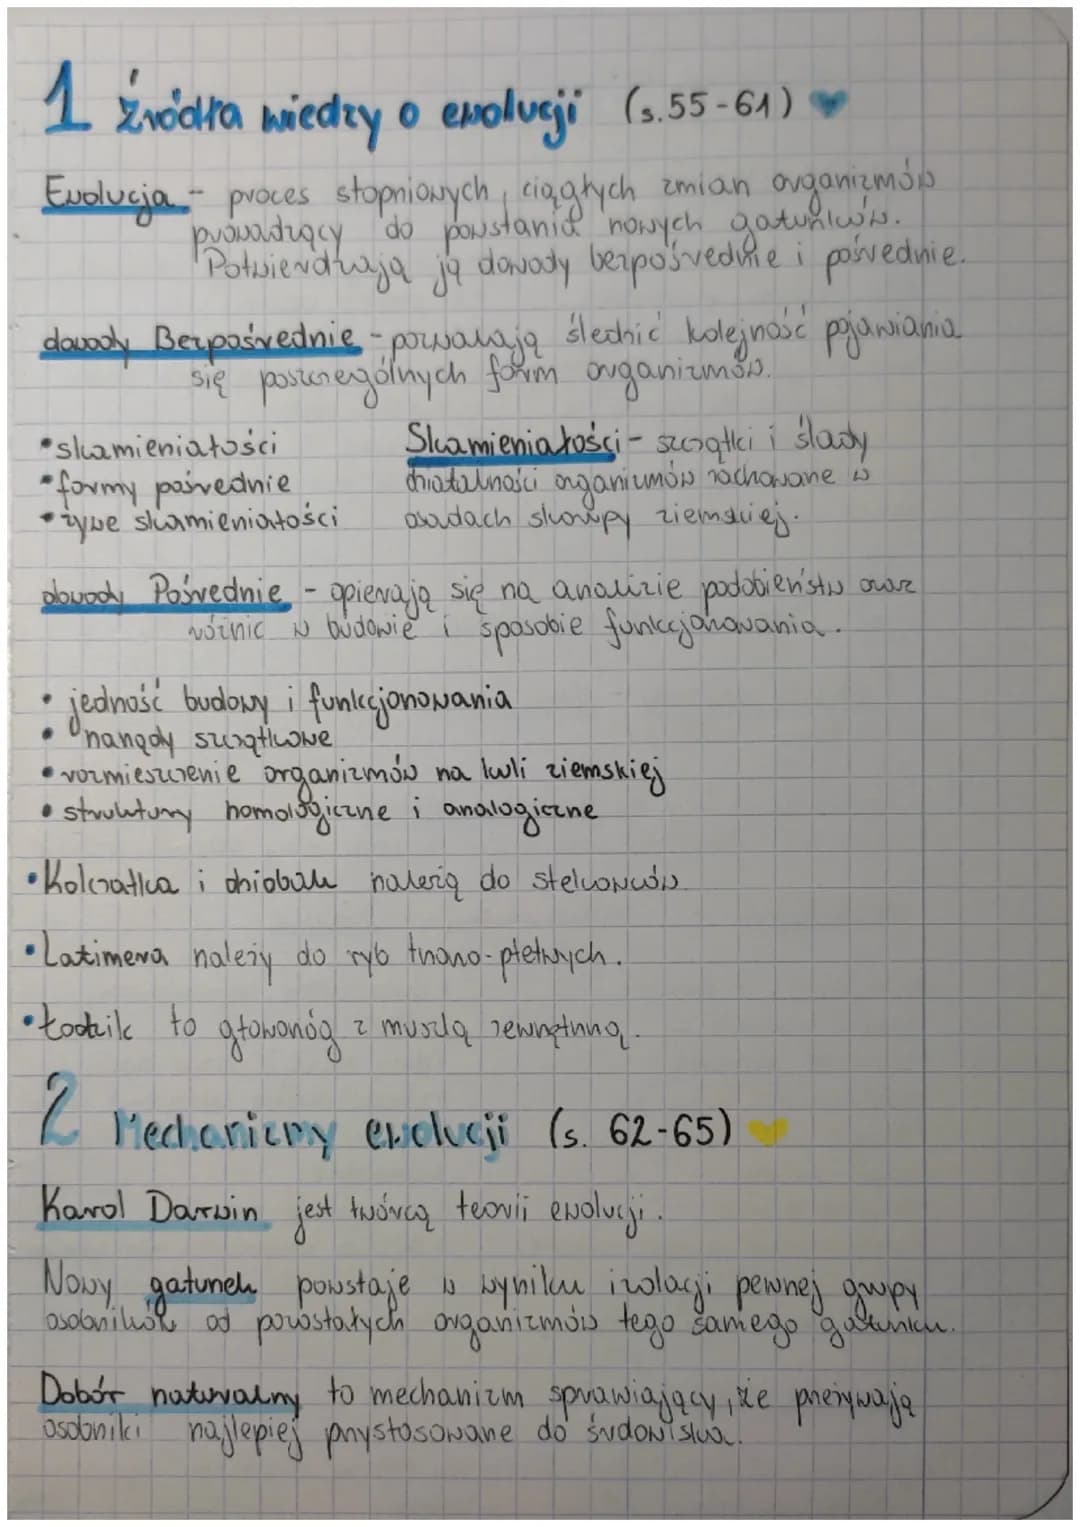 1 Źródła wiedzy o ewolucji (s.55-61)
Ewolucja - proces stopniowych, ciągłych zmian organizmów
prowadzący do powstania nowych gatunków.
Potwierdzają ją dowody bezpośrednie i pośrednie.
dowody Bezpośrednie - pozwalają śledzić kolejność pojawiania
się poszczególnych form organizmów.
•skamieniałości
•formy pośrednie
•żywe skamieniałości
Skamieniałości - szczątki i ślady
działalności organizmów zachowane w
osadach skorupy ziemskiej.
dowody Pośrednie - opierają się na analizie podobieństw oraz
różnic w budowie i sposobie funkcjonowania.
• jedność budowy i funkcjonowania
• narządy szczątkowe
• rozmieszczenie organizmów na kuli ziemskiej
• struktury homologiczne i analogiczne
•Kolczatka i dziobak należą do stekowców
•Latimera należy do ryb trzono-płetwych.
•Łodzik to głowonóg z muszlą zewnętrzną.
2 Mechanizmy ewolucji (s. 62-65)
Karol Darwin jest twórcą teorii ewolucji.
Nowy gatunek powstaje w wyniku izolacji pewnej grupy
osobników od pozostałych organizmów tego samego gatunku.
Dobór naturalny to mechanizm sprawiający, że przeżywają
osobniki najlepiej przystosowane do środowiska.